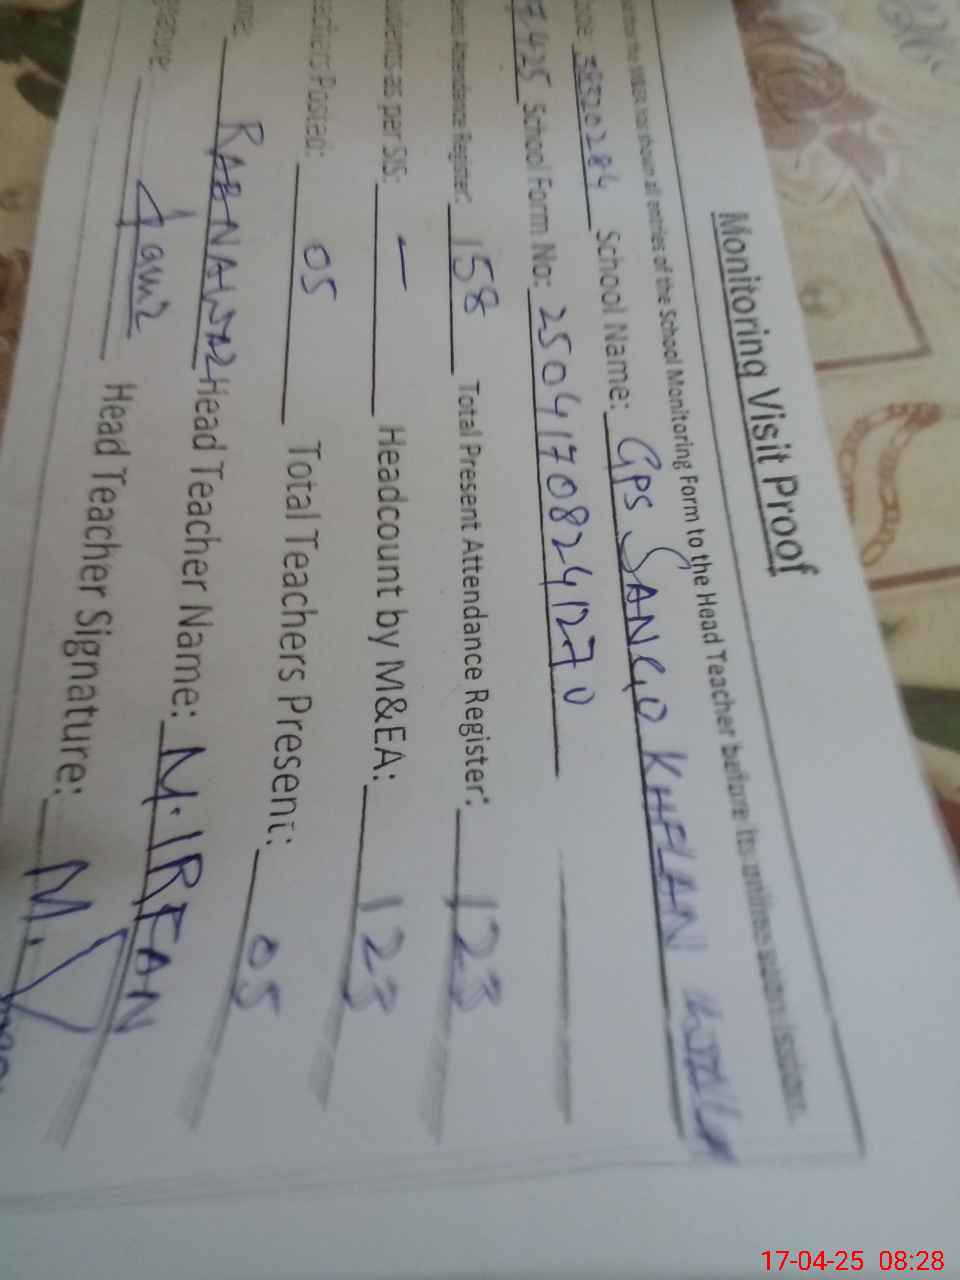 Monitoring Visit Proof
has shown all entries of the School Monitoring Form to the Head Teacher before its online submission.
School Name: GPS SANGO KHELAN WALA
425 School Form No: 25041708241270
Attendance Register: 158 Total Present Attendance Register: 123
as per SIS: — Headcount by M&EA: 123
Posted: 05 Total Teachers Present: 05
RABNAWAZ Head Teacher Name: M. IRFAN
Head Teacher Signature: M.
17-04-25 08:28